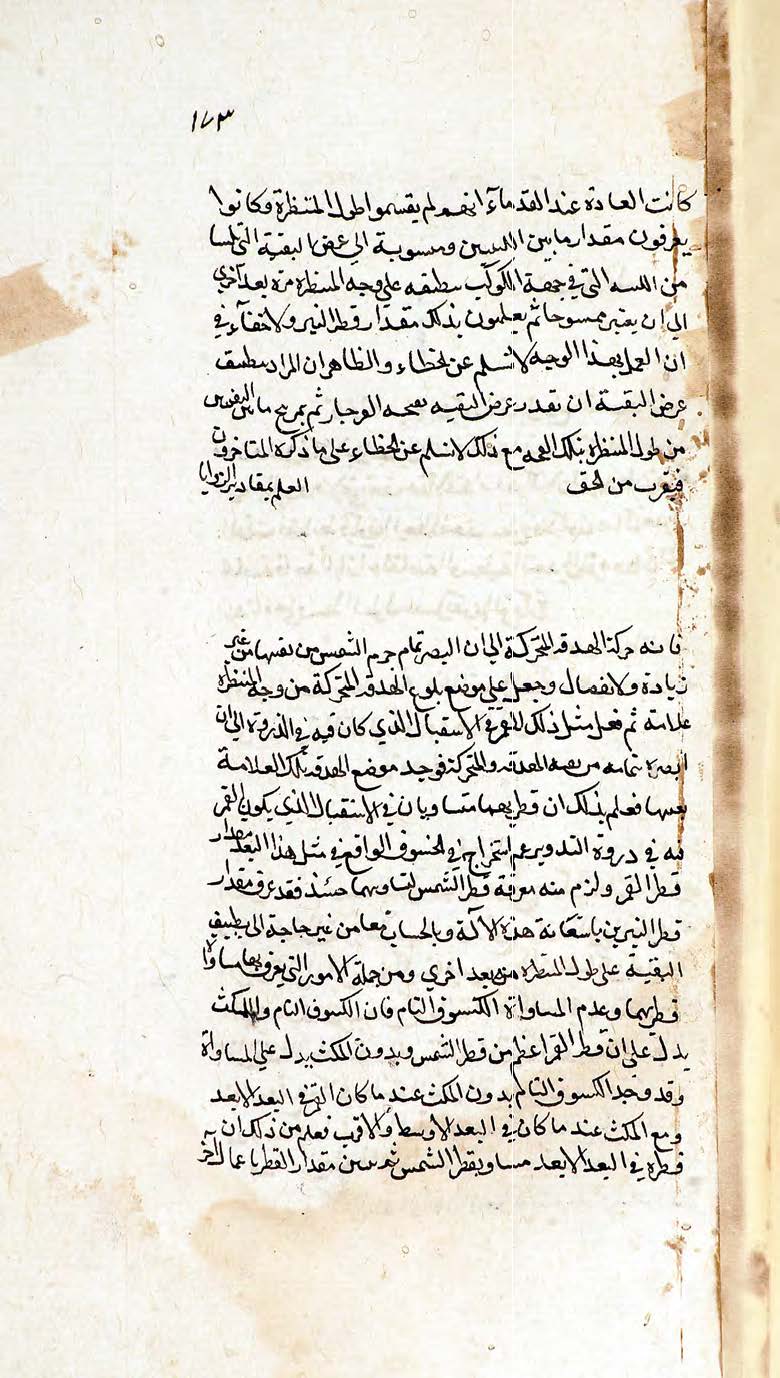 ١٧٣
كانت العادة عند القدمآء انهم لم يقسموا طول المنظرة وكانوا
يعرفون مقدار ما بين اللبنتين ومنسوبة الى عرض الثقبة التى
من اللبنه التى فى جهة الكوكب بتطبيقه على وجه المنظره مرة بعد اخرى
الى ان يصير ممسوحا ثم يعلمون بذلك مقدار قطر النير ولا خفآء فى
ان العمل بهذا الوجه لا تسلم عن الخطاء والظاهر ان المراد بتطبيق
عرض الثقبة ان تقدر عرض الثقبه الفرجار ثم يمسح ما بين
من طول المنظره بتلك مع ذلك لا تسلم عن الخطاء على ما ذكره المتاخرون
فيقرب من الحق العلم بمقادير الزوايا
فانه حركة الهدفه المتحركة الى ان البصر تمام جرم الشمس من ثقبها من غير
زيادة ولا نقصان وجعل على موضع بلوغ الهدفه المتحركة من وجه المنظره
علامة ثم فعل مثل ذلك للقمر فى الاستقبال الذى كان فيه فى الذروة الى ان
ابصره بتمامه من الهدفه المتحركة فوجد موضع الهدفه تلك العلامة
بعينها فعلم بذلك ان قطريهما متساويان فى الاستقبال الذى يكون القمر
فيه فى ذروة التدوير ثم استخراج فى الخسوف الواقع فى مثل هذا البعد مقدار
قطر القمر ولزم منه معرفة قطر الشمس لتساويهما حينئذ فقد عرف مقدار
قطر النيرين باستعانة هذه الالة وبالحساب معا من غير حاجة الى تطبيق
الثقبة على طول المنظره مرة بعد اخرى ومن جملة الامور التى يعرف بها مساواة
قطريهما وعدم المساواة الكسوف التام فان الكسوف التام والمكث
يدل على ان قطر القمر اعظم من قطر الشمس وبدون المكث يدل على المساواة
وقد وجد الكسوف التام بدون المكث عند ما كان القمر فى البعد الابعد
ومع المكث عند ما كان فى البعد الاوسط والاقرب فعلم من ذلك ان
قطره فى البعد الابعد مساو بقطر الشمس ثم مقدار القطر باعمال اخر